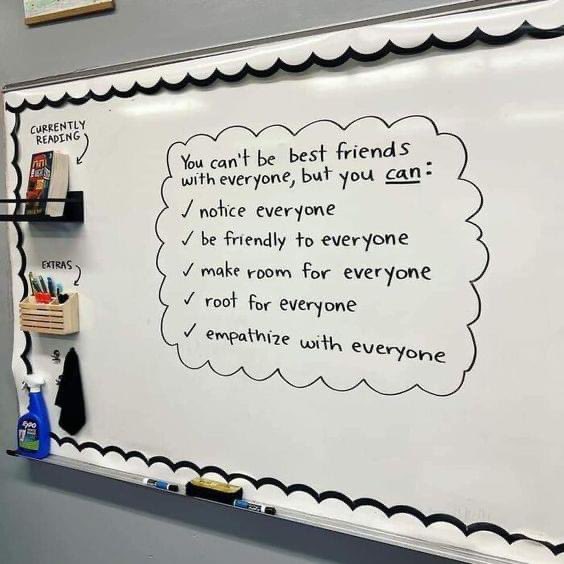 CURRENTLY
READING
You can't be best friends
with everyone, but you can:
✓ notice everyone
✓ be friendly to everyone
✓ make room for everyone
✓ root for everyone
✓ empathize with everyone
EXTRAS
EXPO